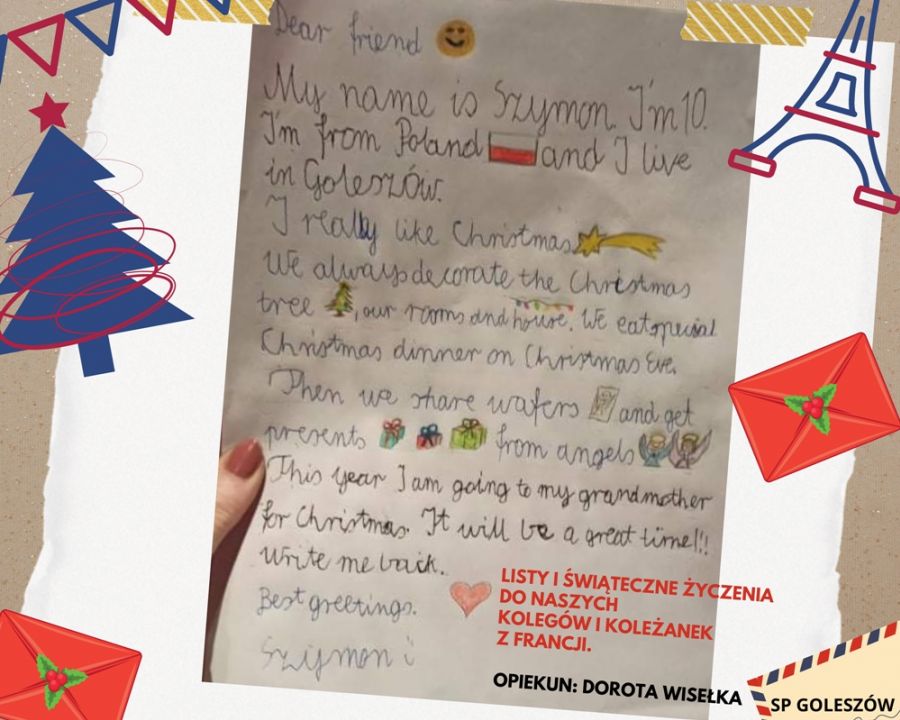 Dear friend
My name is Szymon. I'm 10.
I'm from Poland and I live
in Goleszów.
I really like Christmas
We always decorate the Christmas
tree , our rooms and house. We eat special
Christmas dinner on Christmas Eve.
Then we share wafers and get
presents from angels
This year I am going to my grandmother
for Christmas. It will be a great time!!
Write me back.
Best greetings.
Szymon i
LISTY I ŚWIĄTECZNE ŻYCZENIA
DO NASZYCH
KOLEGÓW I KOLEŻANEK
Z FRANCJI.
OPIEKUN: DOROTA WISEŁKA
SP GOLESZÓW